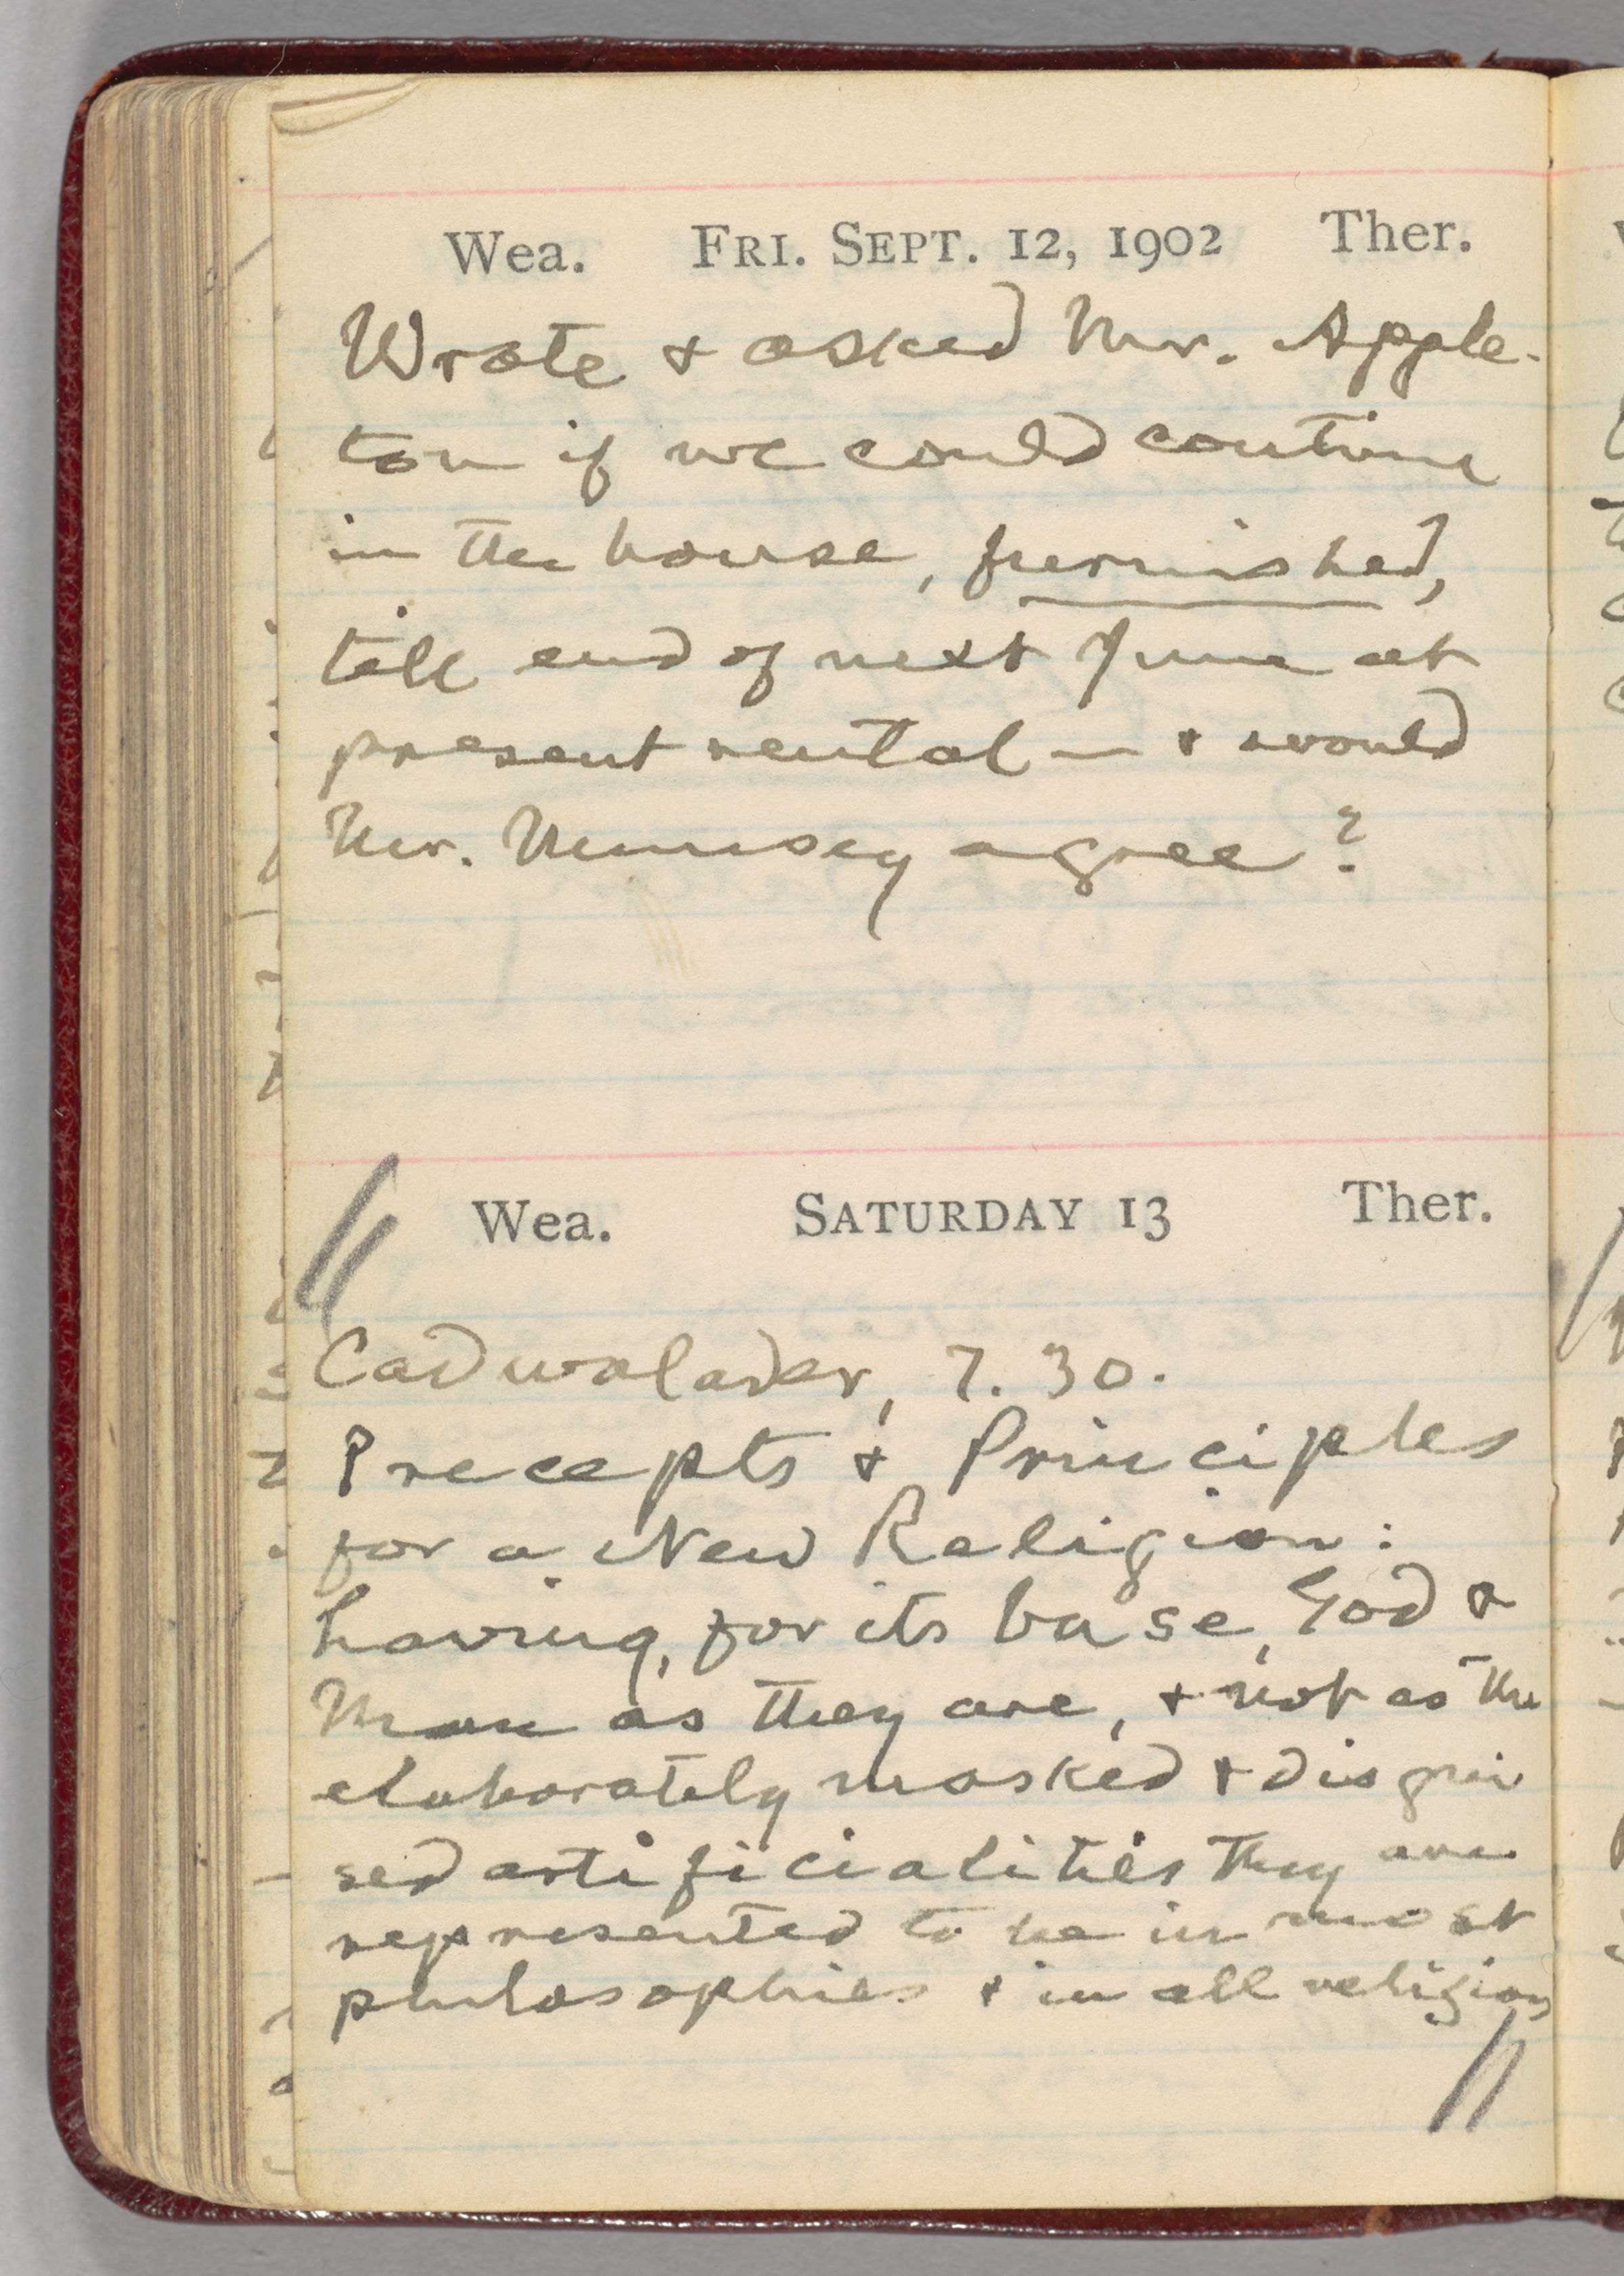 Wea. FRI. SEPT. 12, 1902 Ther.
Wrote & asked Mr. Apple-
ton if we could continue
in the house, furnished,
till end of next June at
present rental — & would
Mr. Munsey agree?
Wea. SATURDAY 13 Ther.
Cadwalader, 7.30.
Precepts & Principles
for a New Religion:
having, for its base, God &
Man as they are, & not as the
elaborately masked & disgui
sed artificialities they are
represented to be in most
philosophies & in all religions